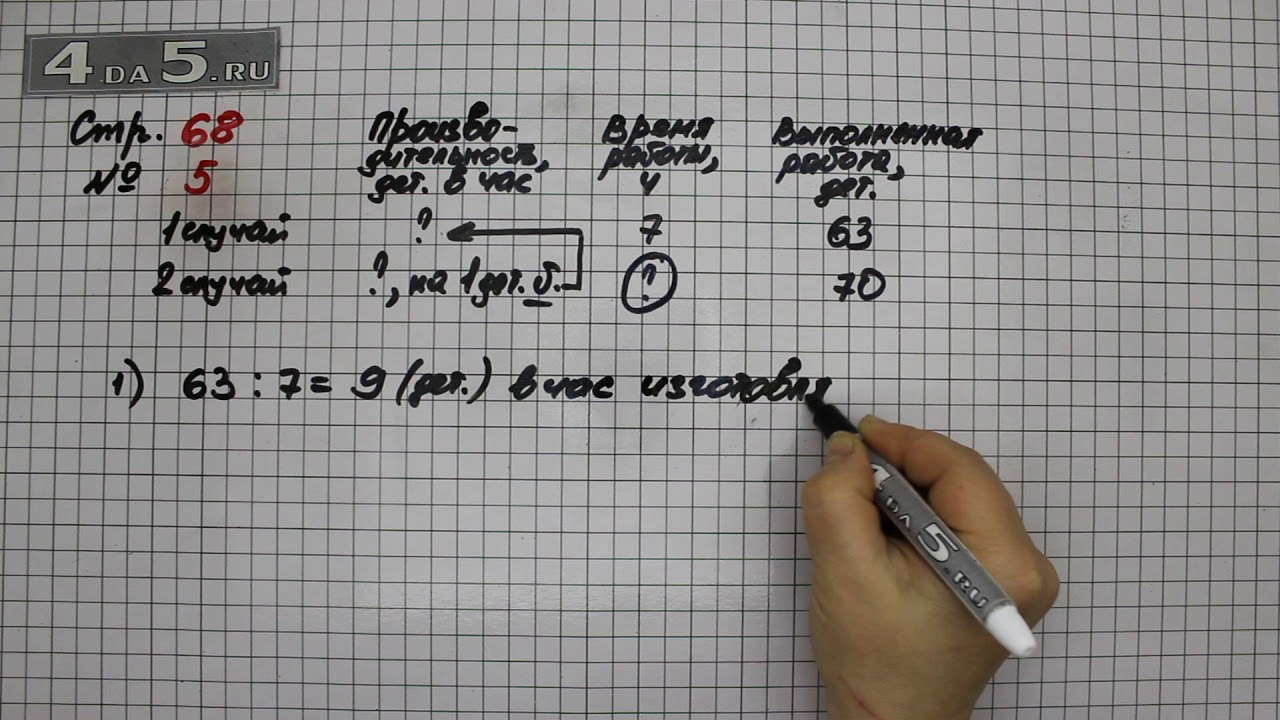 4.DA 5.RU
Стр. 68
№ 5
Произво-
дительность,
дет. в час
Время
работы,
ч
Выполненная
работа,
дет.
1 случай ? 7 63
2 случай ?, на 1 дет. б. ? 70
1) 63 : 7 = 9 (дет.) в час изготовля
4 DA 5.RU